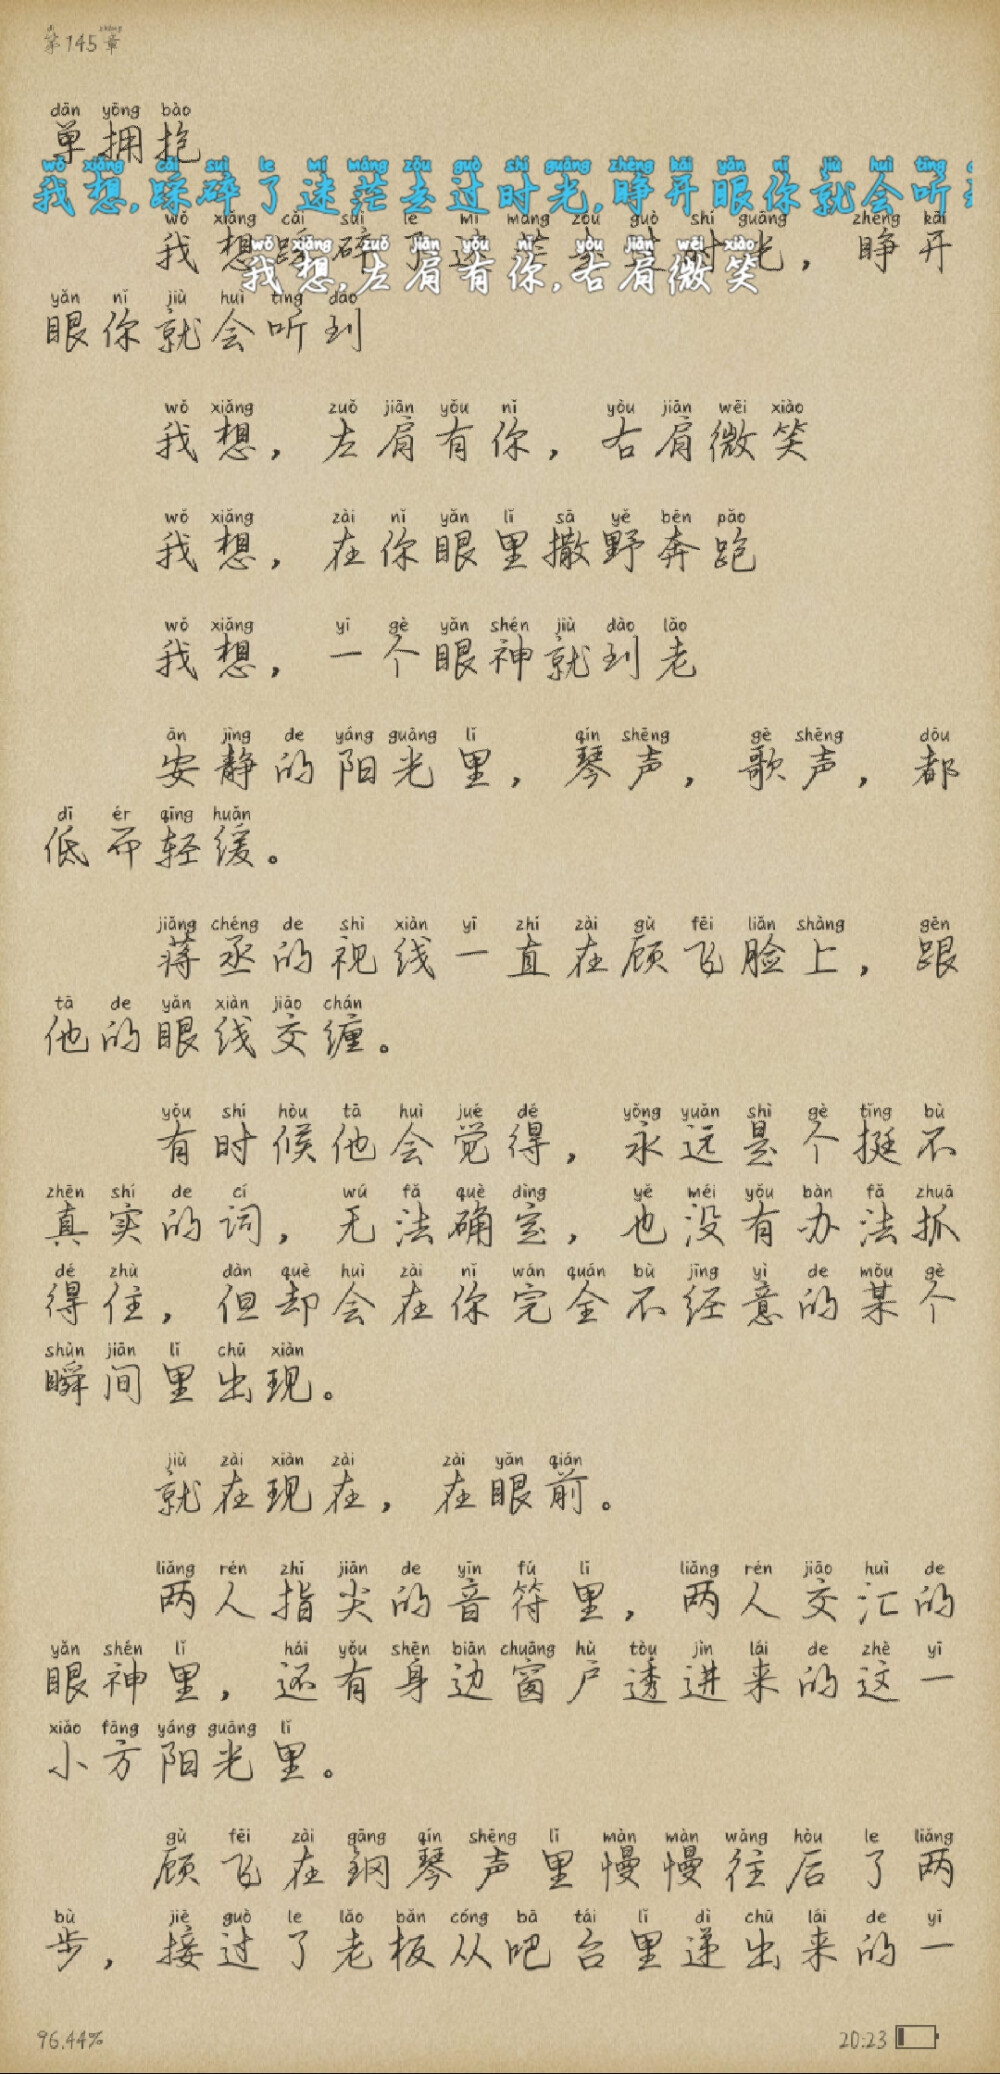 第145章
单拥抱
我想,踩碎了迷茫走过时光,睁开眼你就会听
我想,踩碎了迷茫走过时光,睁开
我想,左肩有你,右肩微笑
眼你就会听到
我想,左肩有你,右肩微笑
我想,在你眼里撒野奔跑
我想,一个眼神就到老
安静的阳光里,琴声,歌声,都
低而轻缓。
蒋丞的视线一直在顾飞脸上,跟
他的眼线交缠。
有时候他会觉得,永远是个挺不
真实的词,无法确定,也没有办法抓
得住,但却会在你完全不经意的某个
瞬间里出现。
就在现在,在眼前。
两人指尖的音符里,两人交汇的
眼神里,还有身边窗户透进来的这一
小方阳光里。
顾飞在钢琴声里慢慢往后了两
步,接过了老板从吧台里递出来的一
96.44%
20:23